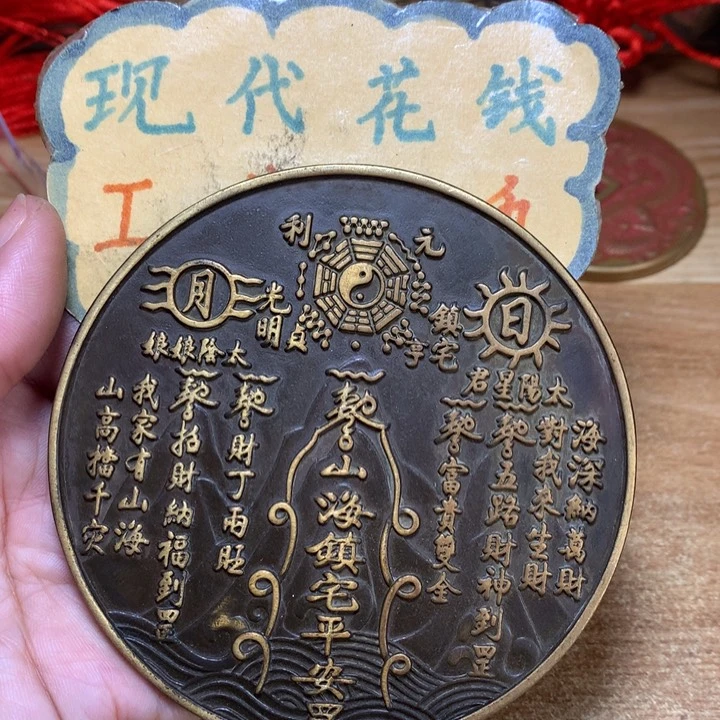 现代花钱
工
元
亨
利
貞
日
月
鎮宅
光明
太陽星君
太陰娘娘
海深納萬財
對我來生財
五路財神到罡
富貴雙全
山海鎮宅平安罡
財丁兩旺
招財納福到罡
我家有山海
山高擋千災